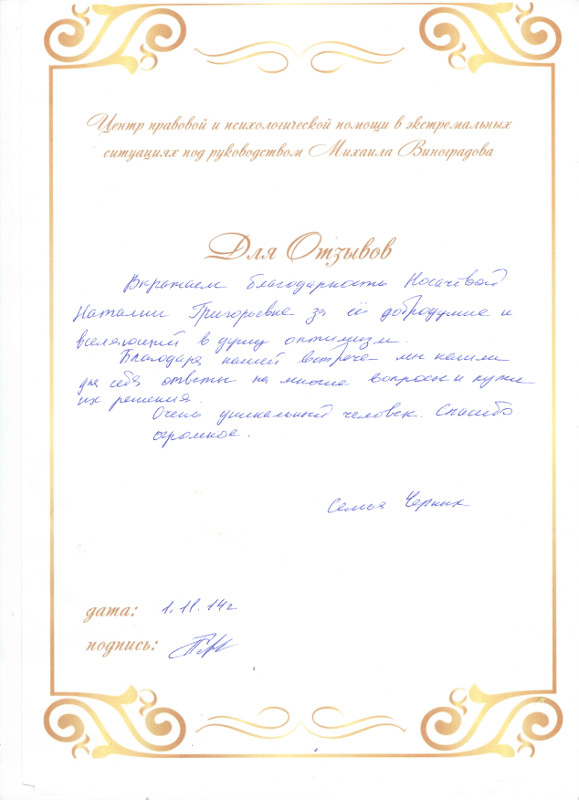 Центр правовой и психологической помощи в экстремальных
ситуациях под руководством Михаила Виноградова
Для Отзывов
Выражаем благодарность Носачёвой
Наталии Григорьевне за её добродушие и
вселяющий в душу оптимизм.
Благодаря нашей встрече мы нашли
для себя ответы на многие вопросы и пути
их решения.
Очень уникальный человек. Спасибо
огромное.
Семья Черник
дата: 1.11.14г
подпись: